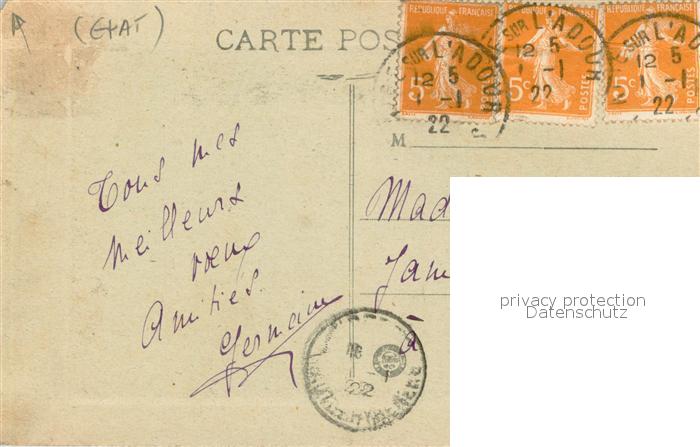 (ETAT)
CARTE POS
REPUBLIQUE FRANÇAISE
5c
POSTES
SUR L'ADOUR
12 5
1 -1
22
REPUBLIQUE FRANÇAISE
5c
POSTES
SUR L'ADOUR
12 5
1 -1
22
REPUBLIQUE FRANÇAISE
5c
POSTES
SUR L'A
12 5
1 -1
22
M
Tous mes
meilleurs
vœux
Amitiés.
Germain
Mad
Jam
à
22
privacy protection
Datenschutz